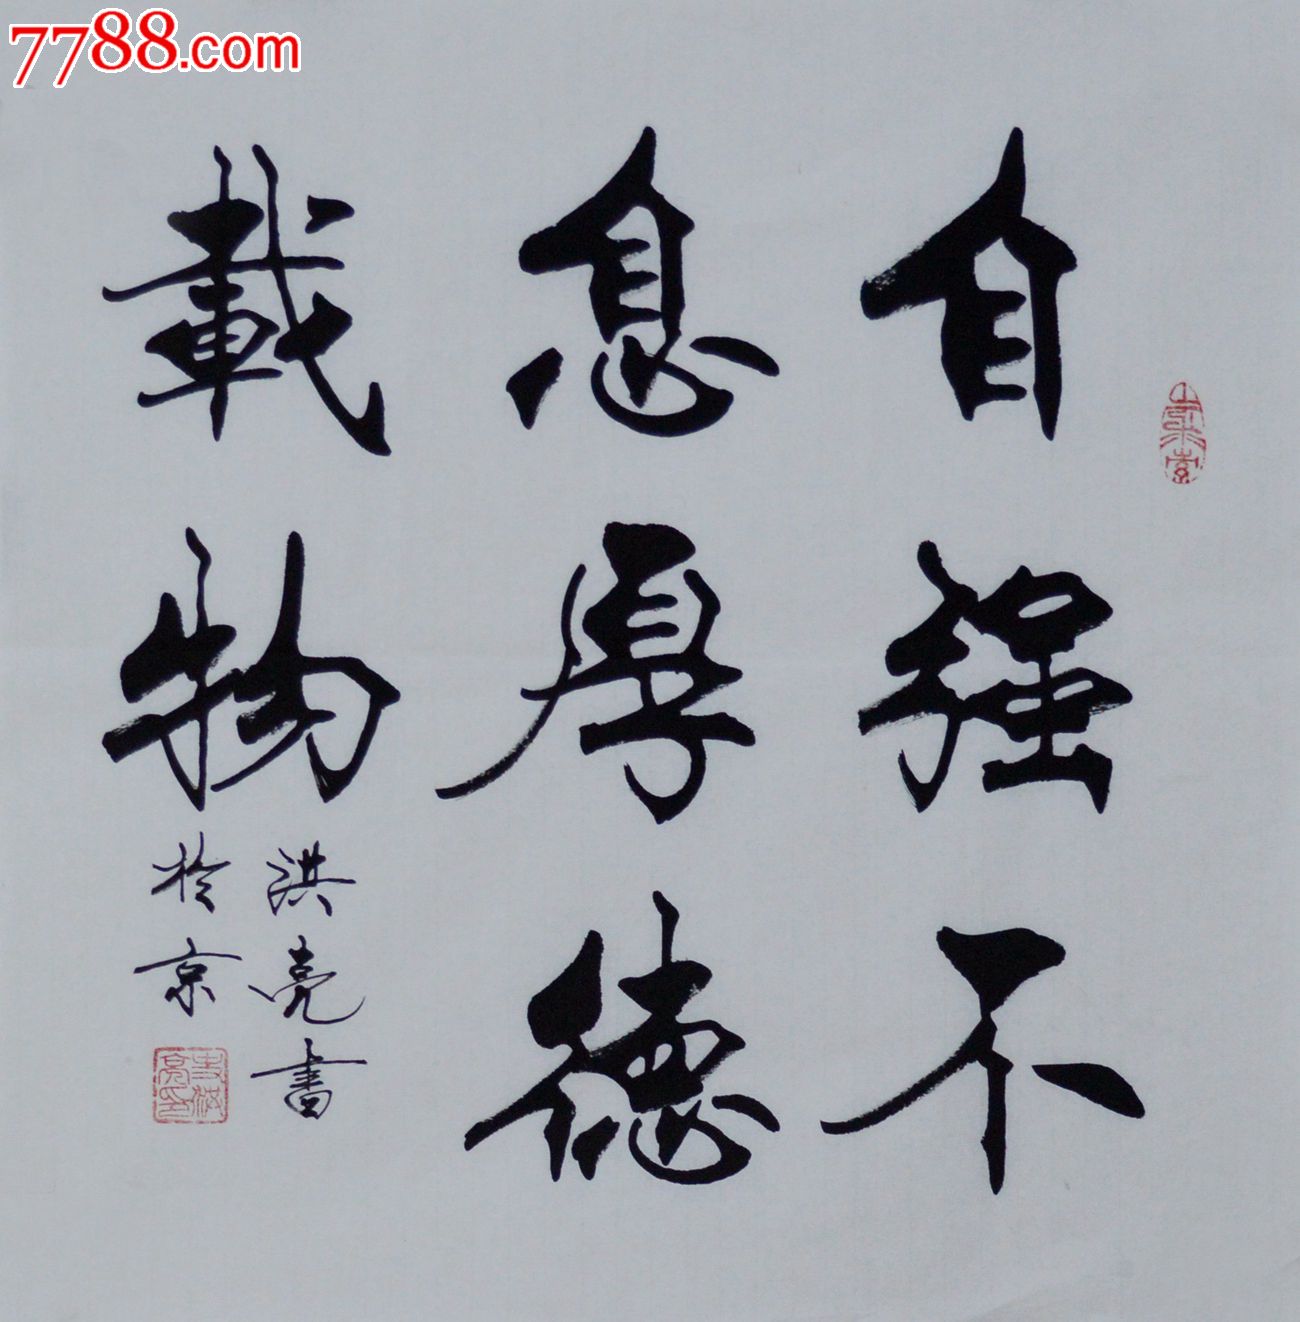 7788.com
自强不
息厚德
載物
洪亮書
於京